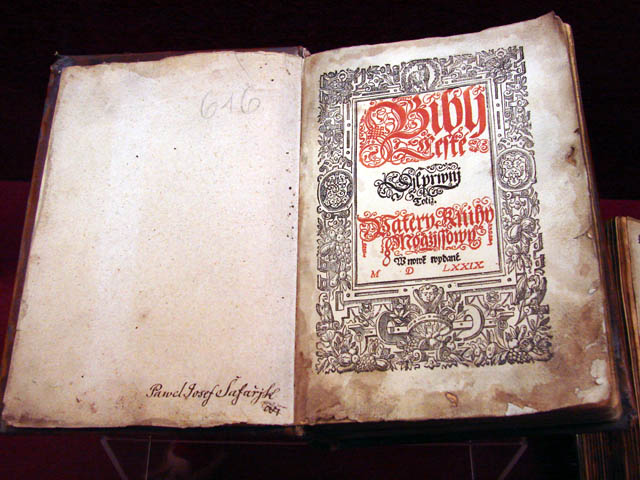 616
Pawel Josef Šafařjk
Biblj
České
Djl prwnj
Totiž
Patery Knihy
Mogžjssowy
W nowě wydané
M D LXXIX